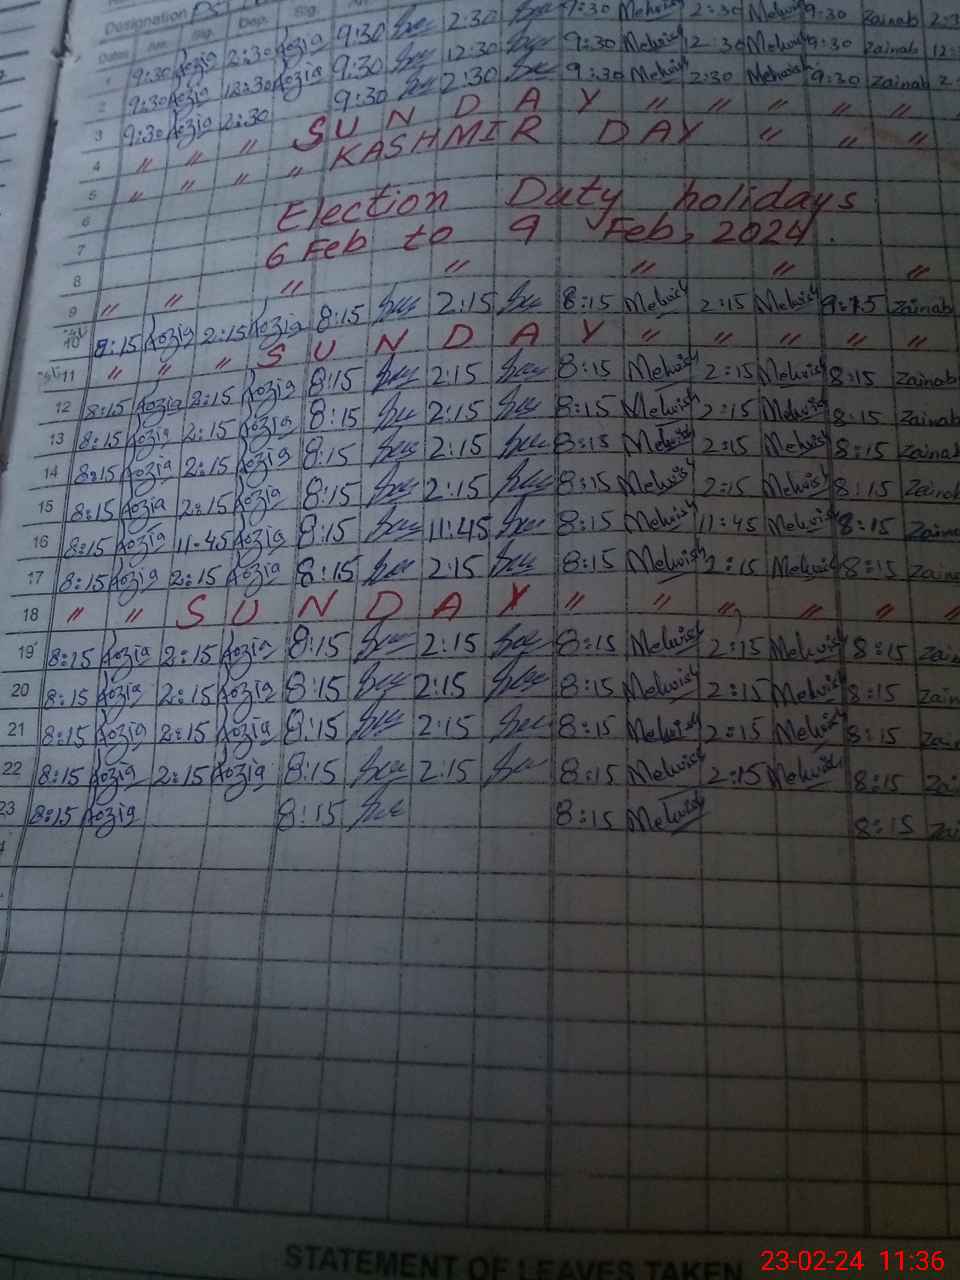 Designation PS
Dates Arr. Sig. Dep. Sig.
1 9:30 Rozia 2:30 Rozia 9:30 2:30 9:30 Mehwish 2:30 Mehwish 9:30 Zainab 2:3
2 9:30 Rozia 12:30 Rozia 9:30 12:30 9:30 Mehwish 12:30 Mehwish 9:30 Zainab 12:
3 9:30 Rozia 2:30 9:30 2:30 9:30 Mehwish 2:30 Mehwish 9:30 Zainab 2:
4 " " " S U N D A Y " " " " "
5 " " " " KASHMIR DAY " " "
6 Election Duty holidays
7 6 Feb to 9 Feb, 2024.
8
9 " " " " " " "
10 8:15 Rozia 2:15 Rozia 8:15 2:15 8:15 Mehwish 2:15 Mehwish Zainab
11 " " " S U N D A Y " " " " "
12 8:15 Rozia 2:15 Rozia 8:15 2:15 8:15 Mehwish 2:15 Mehwish 8:15 Zainab
13 8:15 Rozia 2:15 Rozia 8:15 2:15 8:15 Mehwish 2:15 Mehwish 8:15 Zainab
14 8:15 Rozia 2:15 Rozia 8:15 2:15 8:15 Mehwish 2:15 Mehwish 8:15 Zainab
15 8:15 Rozia 2:15 Rozia 8:15 2:15 8:15 Mehwish 2:15 Mehwish 8:15 Zainab
16 8:15 Rozia 11:45 Rozia 8:15 11:45 8:15 Mehwish 11:45 Mehwish 8:15 Zaina
17 8:15 Rozia 2:15 Rozia 8:15 2:15 8:15 Mehwish 2:15 Mehwish 8:15 Zaina
18 " " S U N D A Y " " " " " "
19 8:15 Rozia 2:15 Rozia 8:15 2:15 8:15 Mehwish 2:15 Mehwish 8:15 Zain
20 8:15 Rozia 2:15 Rozia 8:15 2:15 8:15 Mehwish 2:15 Mehwish 8:15 Zain
21 8:15 Rozia 2:15 Rozia 8:15 2:15 8:15 Mehwish 2:15 Mehwish 8:15 Zai
22 8:15 Rozia 2:15 Rozia 8:15 2:15 8:15 Mehwish 2:15 Mehwish 8:15 Zai
23 8:15 Rozia 8:15 8:15 Mehwish 8:15 Zai
STATEMENT OF LEAVES TAKEN
23-02-24 11:36